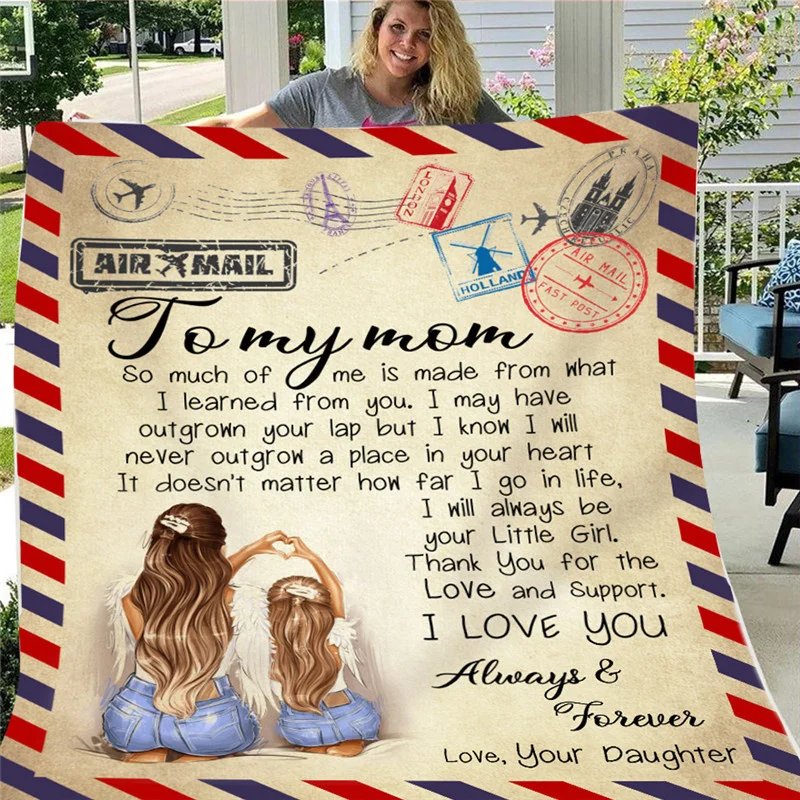 LONDON
PRAHA
HOLLAND
AIR MAIL
FAST POST
AIR MAIL
To my mom
So much of me is made from what
I learned from you. I may have
outgrown your lap but I know I will
never outgrow a place in your heart
It doesn't matter how far I go in life,
I will always be
your Little Girl.
Thank You for the
Love and Support.
I LOVE YOU
Always &
Forever
Love, Your Daughter